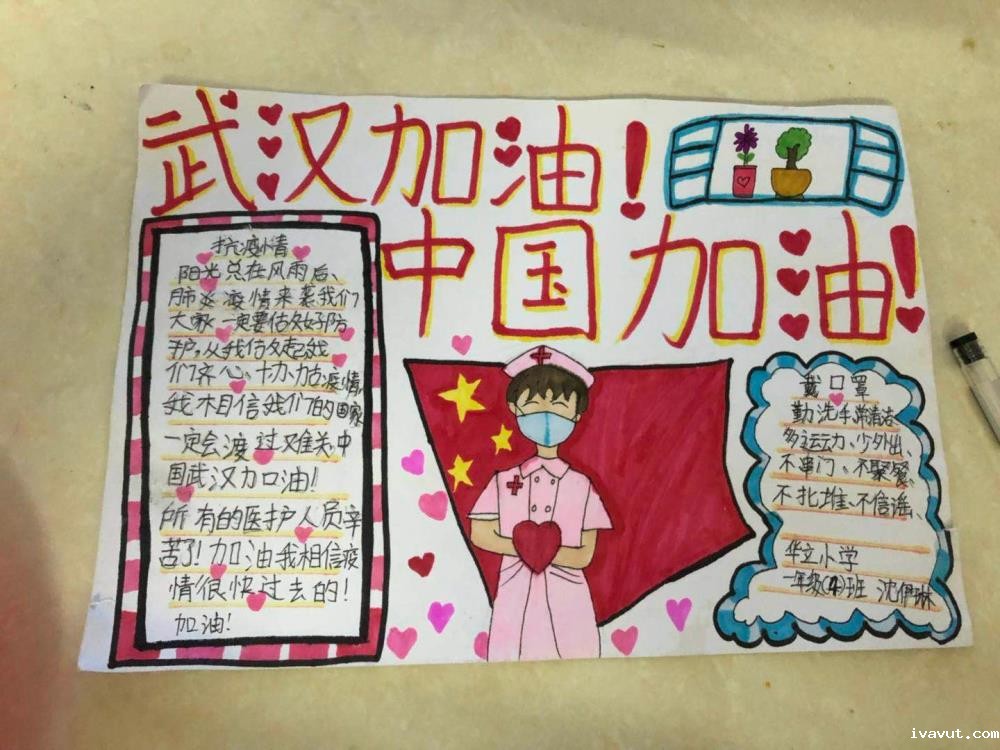 武汉加油！
中国加油！
抗疫情
阳光总在风雨后、
肺炎疫情来袭我们
大家一定要估好防
护，从我估起我
们齐心、十办力估疫情，
我相信我们的国家
一定会渡过难关，中
国武汉加油！
所有的医护人员辛
苦了！加油我相信疫
情很快过去的！
加油！
戴口罩
勤洗手常清洁、
多运动、少外出、
不串门、不聚餐、
不扎堆、不信谣、
华立小学
一年级（4）班 沈伊琳
ivavut.com